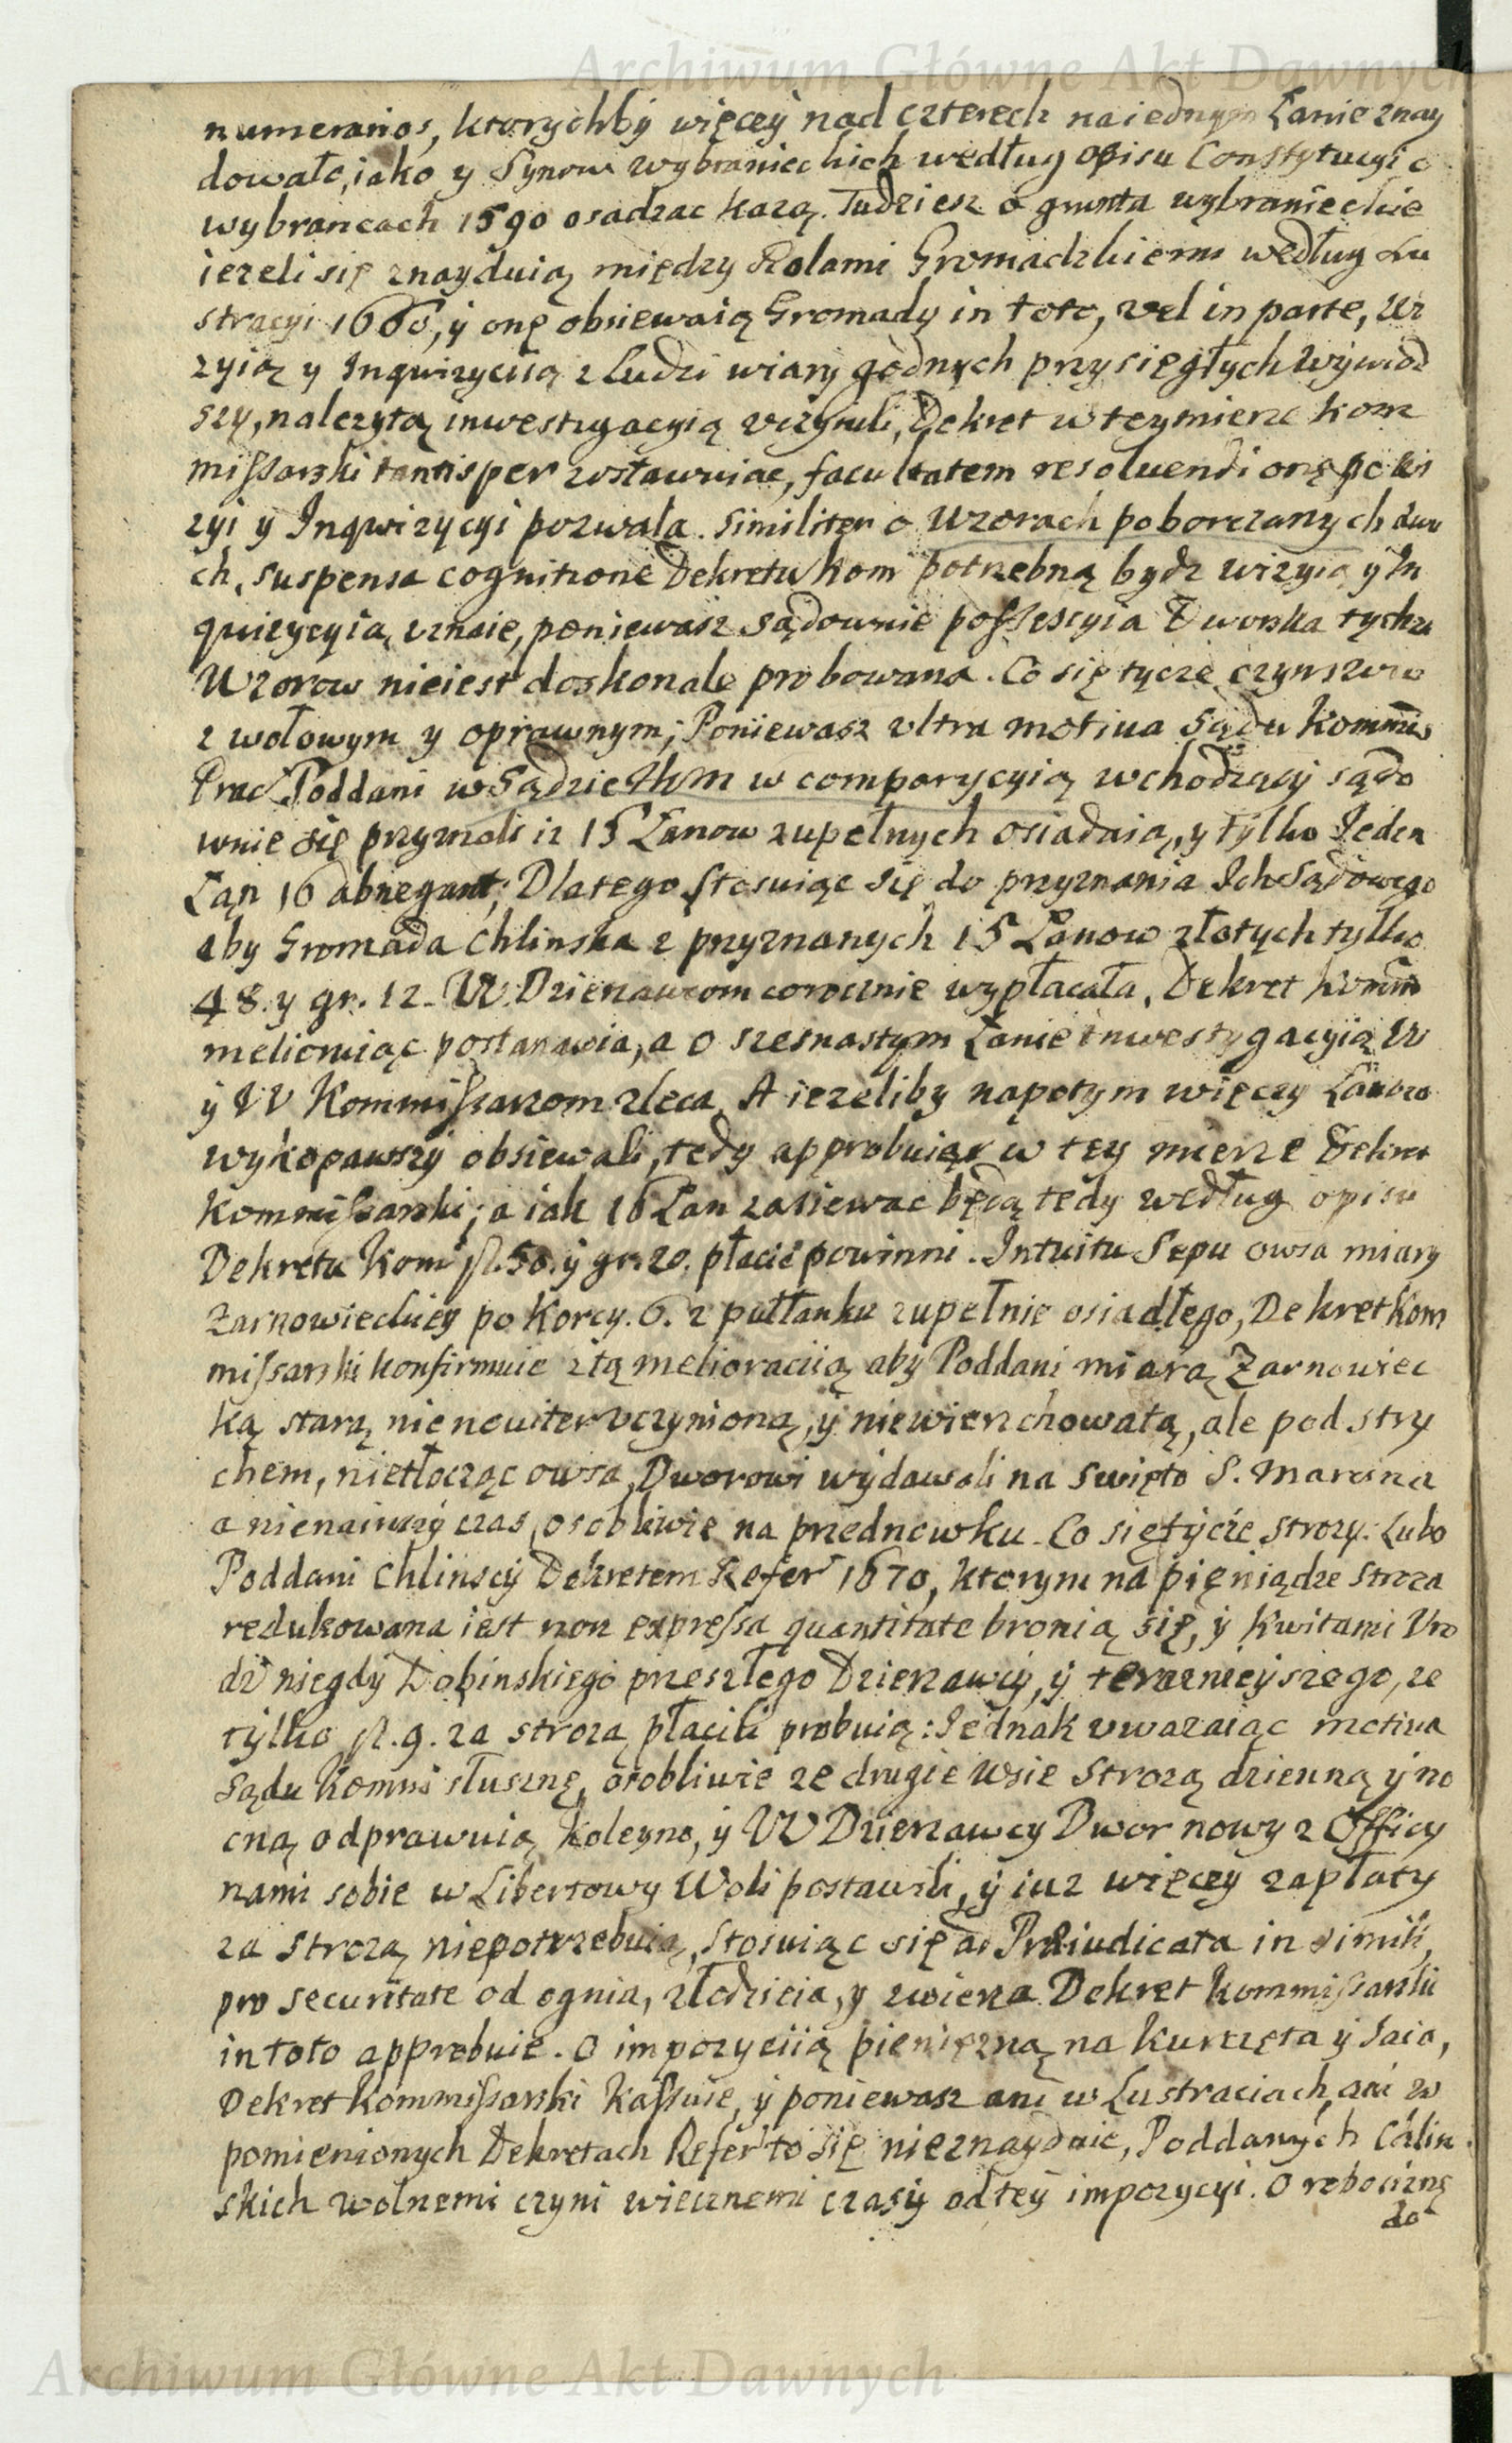 Archiwum Główne Akt Dawnych
numerarios, ktorychby więcey nad czterech na iednym Łanie znay
dowało, iako y Synow wybranieckich według opisu Constytucyi o
wybrancach 1590 osadzac każą. Tudziesz o grunta wybranieckie
iezeli się znayduią między Rolami Gromadzkiemi według Lu
stracyi 1660, y onę obsiewaią Gromady in toto, vel in parte, Wi
zyią y Inqwizycyią z Ludzi wiary godnych przysięgłych wywiod
szy, nalezytą inwestygacyią vczynili, Dekret w tey mierze kom
missarski tantisper zostawuiąc, facultatem resoluendi onę po wi
zyi y Inqwizycyi pozwala. Similiter o Wzorach poborczanych dwu
ch, suspensa cognitione Dekretu Kom potrzebną bydz wizyią y In
quizycyią vznaie, poniewasz sądownie possessyia Dworska tychze
Wzorow nieiest doskonale probowana. Co się tycze czynszow
z wołowym y oprawnym; Poniewasz vltra motiva Sądu Kommis
Prac Poddani w Sądzie Nm w comparycyią wchodzący sądo
wnie się przyznali iz 15 Łanow zupełnych osiadaią, y tylko Ieden
Łan 16 abnegant; Dlatego stosuiąc się do przyznania Ich Sądowego
aby Gromada Chlinska z przyznanych 15 Łanow złotych tylko
48. y gr. 12. W. Dzierzawcom corocznie wypłacała, Dekret Komm
meliorniąc postanawia, a o szesnastym Łanie inwestygacyią W
y VV Kommissarzom zleca. A iezeliby napotym więcey Łanow
wykopawszy obsiewali, tedy approbuiąc w tey mierze Dekret
Kommissarski; a iak 16 Łan zasiewac będą tedy według opisu
Dekretu Kom fl. 50. y gr. 20. płacić powinni. Intuitu Sepu owsa miary
Zarnowieckiey po Korcy. 6. z pułłanku zupełnie osiadłego, Dekret Kom
missarski konfirmuie z tą melioracyią aby Poddani miarą Zarnowiec
ką starą nie noviter vczynioną, y niewierzchowatą, ale pod stry
chem, nietłocząc owsa, Dworowi wydawali na Swięto S. Marcina
a nienainszy czas, osobliwie na przednowku. Co się tycze strozy: Lubo
Poddani Chlinscy Dekretem Refer 1670, ktorym na pięniądze stroza
redukowana iest non expressa quantitate bronią się, y kwitami Vro
dz niegdy Dobinskiego przeszłego Dzierzawcy, y teraznieyszego, ze
tylko fl. 9. za strozą płacili probuią: Iednak vwazaiąc motiva
Sądu Kommis słusznę, osobliwie ze drugie Wsie Strozą dzienną y no
cną odprawuią koleyno, y VV Dzierzawcy Dwor nowy z Officy
nami sobie w Libertowy Woli postawili, y iuz więcey zapłaty
za strozą niepotrzebuią, Stosuiąc się ad Præiudicata in simili,
pro securitate od ognia, złodzieia, y zwierza Dekret Kommissarski
in toto approbuie. O impozycyią pieniężną na kurczęta y Iaia,
Dekret Kommissarski Kassuie, y poniewasz ani w Lustraciach, ani w
pomienionych Dekretach Refer to się nieznayduie, Poddanych Chlin
skich wolnemi czyni wiecznemi czasy od tey impozycyi. O robociznę
do
Archiwum Główne Akt Dawnych